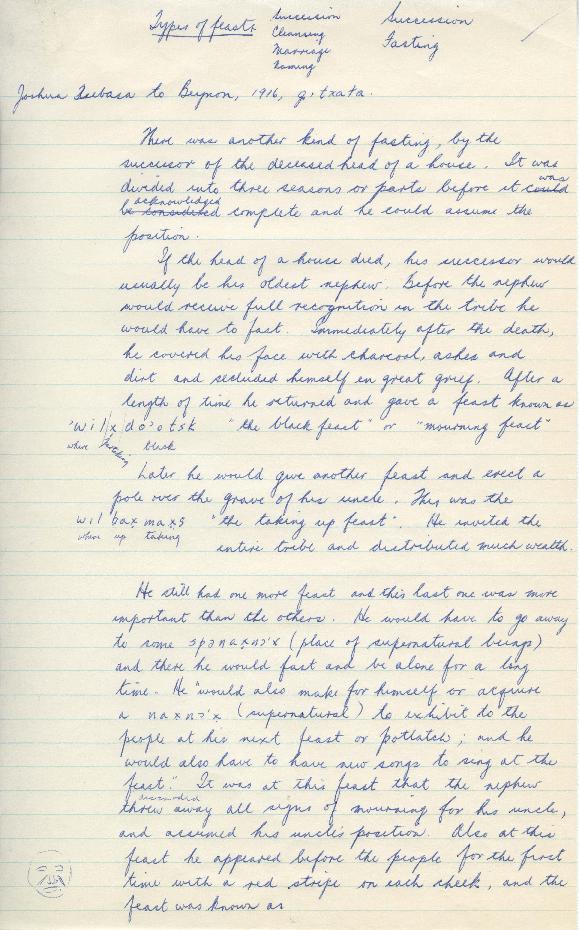 Types of feasts Succession Succession
Cleansing Fasting
Marriage
Naming
Joshua Tsibasa to Beynon, 1916, gitxata.
There was another kind of fasting, by the
successor of the deceased head of a house. It was
divided into three seasons or parts before it could was
be considered acknowledged complete and he could assume the
position.
If the head of a house died, his successor would
usually be his oldest nephew. Before the nephew
would receive full recognition in the tribe he
would have to fast. Immediately after the death,
he covered his face with charcoal, ashes and
dirt and secluded himself in great grief. After a
length of time he returned and gave a feast known as
'wilxdo'otsk "the black feast" or "mourning feast"
where black
Later he would give another feast and erect a
pole over the grave of his uncle. This was the
wil bax maxs "the taking up feast". He invited the
where up taking
entire tribe and distributed much wealth.
He still had one more feast and this last one was more
important than the others. He would have to go away
to some spənaxnɔ'x (place of supernatural beings)
and there he would fast and be alone for a long
time. He "would also make for himself or acquire
a naxnɔ'x (supernatural) to exhibit to the
people at his next feast or potlatch; and he
would also have to have new songs to sing at the
feast." It was at this feast that the nephew
threw away discarded all signs of mourning for his uncle,
and assumed his uncle's position. Also at this
feast he appeared before the people for the first
time with a red stripe on each cheek, and the
feast was known as